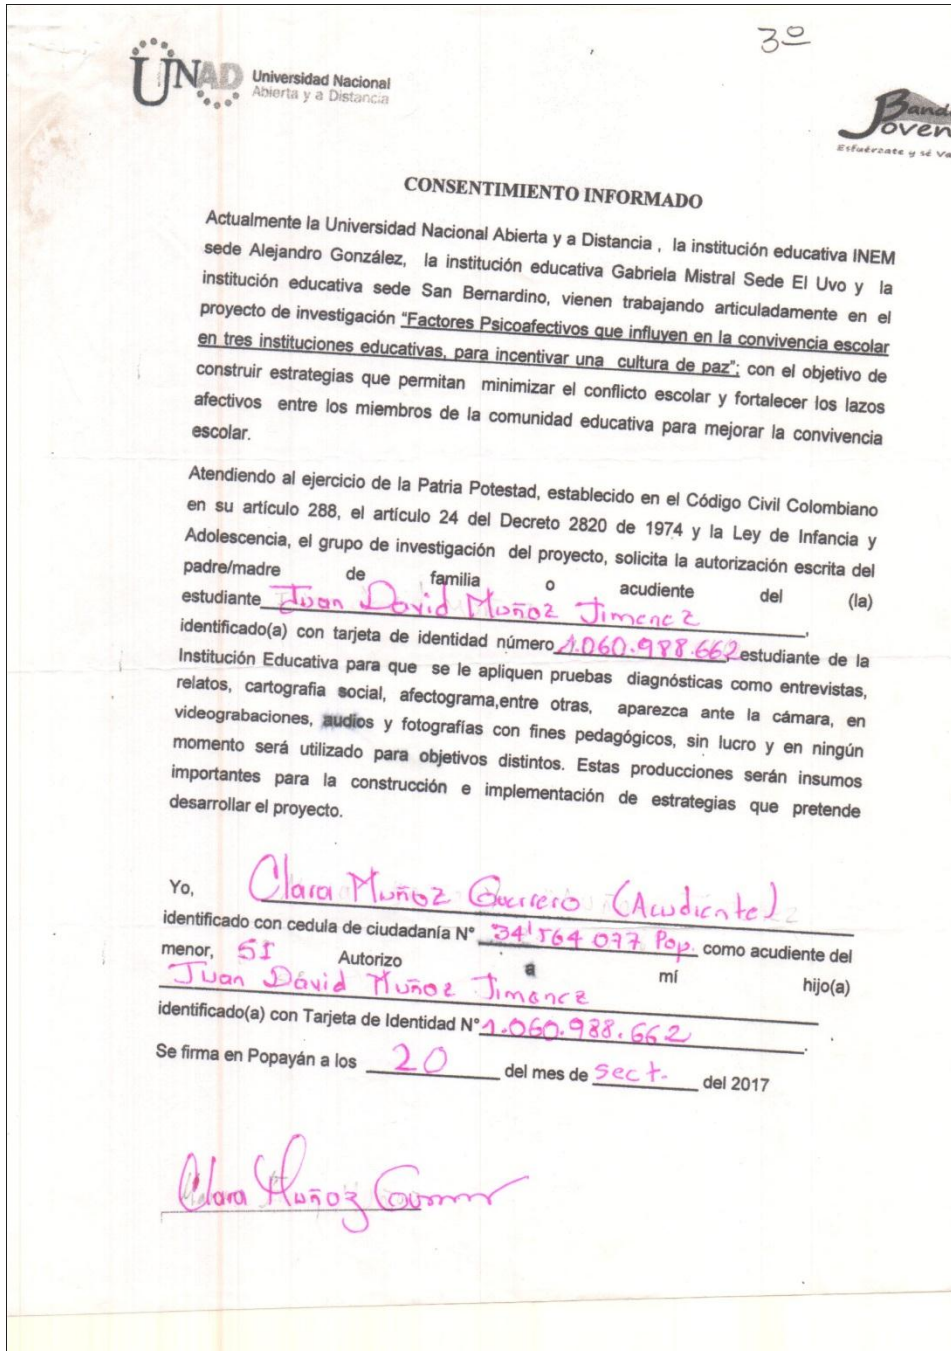 3º
UNAD Universidad Nacional
Abierta y a Distancia
Banda
Joven
Esfuérzate y sé Va
CONSENTIMIENTO INFORMADO
Actualmente la Universidad Nacional Abierta y a Distancia , la institución educativa INEM
sede Alejandro González, la institución educativa Gabriela Mistral Sede El Uvo y la
institución educativa sede San Bernardino, vienen trabajando articuladamente en el
proyecto de investigación "Factores Psicoafectivos que influyen en la convivencia escolar
en tres instituciones educativas, para incentivar una cultura de paz"; con el objetivo de
construir estrategias que permitan minimizar el conflicto escolar y fortalecer los lazos
afectivos entre los miembros de la comunidad educativa para mejorar la convivencia
escolar.
Atendiendo al ejercicio de la Patria Potestad, establecido en el Código Civil Colombiano
en su artículo 288, el artículo 24 del Decreto 2820 de 1974 y la Ley de Infancia y
Adolescencia, el grupo de investigación del proyecto, solicita la autorización escrita del
padre/madre de familia o acudiente del (la)
estudiante Juan David Muñoz Jimenez,
identificado(a) con tarjeta de identidad número 1.060.988.662 estudiante de la
Institución Educativa para que se le apliquen pruebas diagnósticas como entrevistas,
relatos, cartografia social, afectograma,entre otras, aparezca ante la cámara, en
videograbaciones, audios y fotografías con fines pedagógicos, sin lucro y en ningún
momento será utilizado para objetivos distintos. Estas producciones serán insumos
importantes para la construcción e implementación de estrategias que pretende
desarrollar el proyecto.
Yo, Clara Muñoz Guerrero (Acudiente)
identificado con cedula de ciudadanía N° 34'564 077 Pop. como acudiente del
menor, SI Autorizo a mí hijo(a)
Juan David Muñoz Jimenez
identificado(a) con Tarjeta de Identidad N° 1.060.988.662.
Se firma en Popayán a los 20 del mes de sect. del 2017
Clara Muñoz